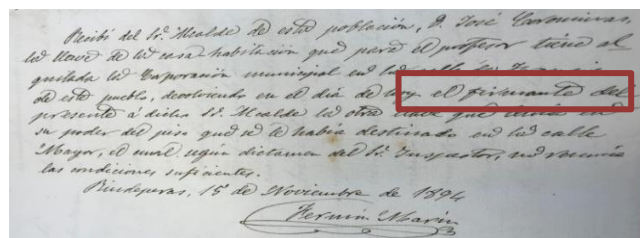 Recibí del Sr. Alcalde de esta población, D. José Corominas,
la llave de la casa habitación que para el profesor tiene al
quilada la Corporación municipal en la calle de
de este pueblo, devolviendo en el día de hoy el firmante del
presente a dicho Sr. Alcalde la otra llave que tenía en
su poder del piso que se le había destinado en la calle
Mayor, el cual según dictamen del Sr. Inspector, no reunía
las condiciones suficientes.
Riudeperas, 15 de Noviembre de 1894
Fermin Marin